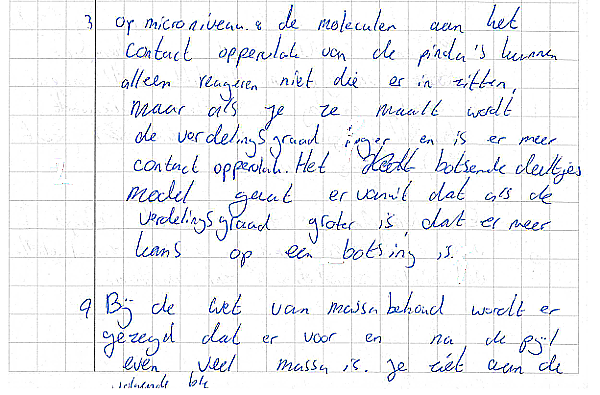 3 op microniveau: de moleculen aan het
contact oppervlak van de pinda's kunnen
alleen reageren niet die er in zitten,
maar als je ze maalt wordt
de verdelingsgraad en is er meer
contact oppervlak. Het botsende deeltjes
model gaat er vanuit dat als de
verdelingsgraad groter is dat er meer
kans op een botsing is.
9 Bij de wet van massa behoud wordt er
gezegd dat er voor en na de pijl
even veel massa is. je ziet aan de